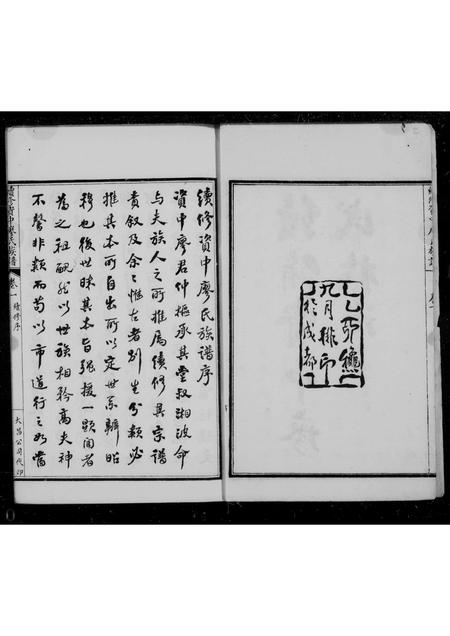 九月排印
於成都
續修資中廖氏族譜序
資中廖君仲樞承其堂叔湘波命
与夫族人之所推屬續修其宗譜
責叙及余〻惟古者別生分類必
推其本所自出所以定世系辨昭
穆也後世昧其本旨強援一顯聞者
為之祖靦然以世族相矜高夫神
不歆非類而苟以市道行之如
續修資中廖氏族譜
卷一
續修序
大昌公司代印